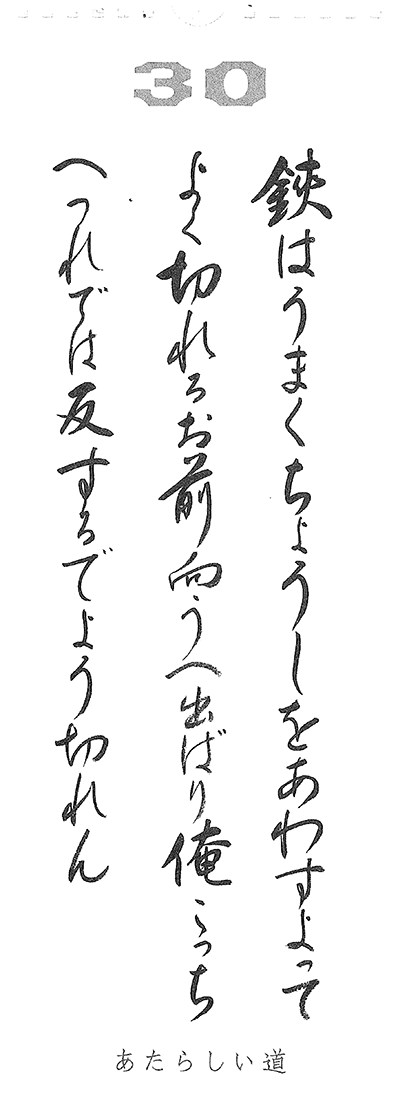 30
鋏はうまくちょうしをあわすよって
よく切れるお前向うへ出ばり俺こっち
へつれでは反するでよう切れん
あたらしい道